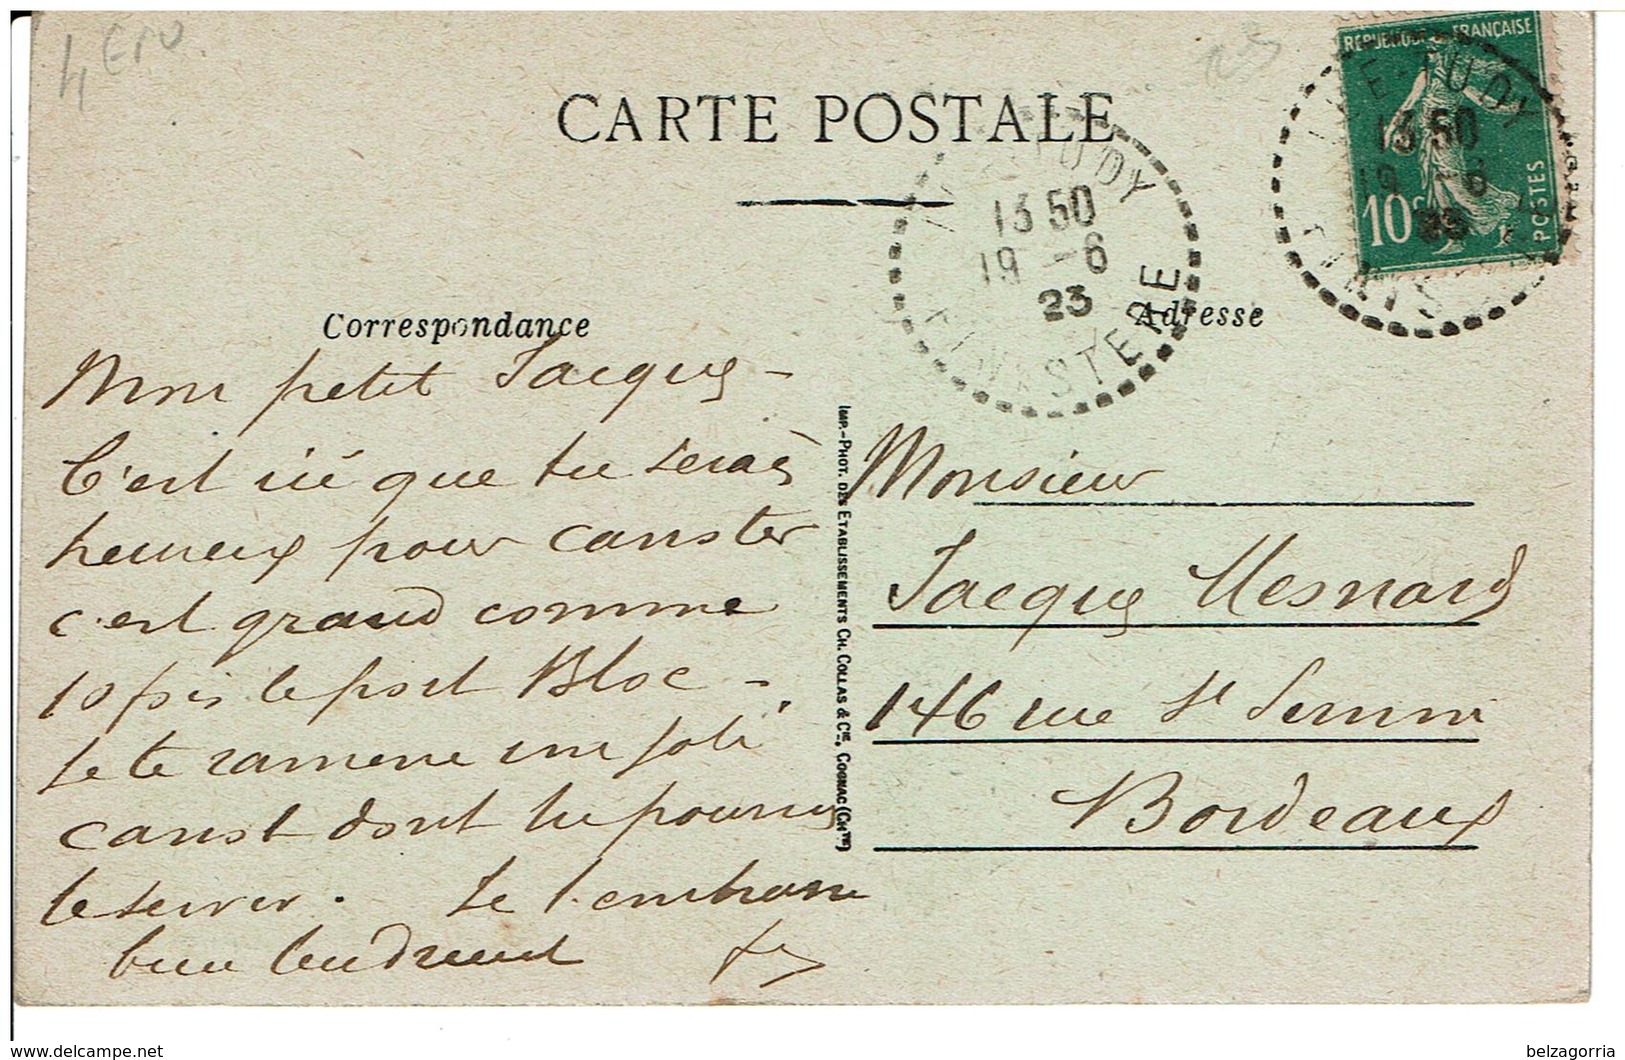 4 €
CARTE POSTALE
REPUBLIQUE FRANÇAISE
10c POSTES
TUDY
13 50
19 -6
23
FINISTERE
ILE-TUDY
13 50
19 -6
23
Correspondance
Adresse
Mon petit Jacques -
C'est ici que tu serais
heureux pour canoter
c'est grand comme
10 fois le port Bloc -
Je te ramene un joli
canot dont tu pourras
te servir. Je t'embrasse
bien tendrement
IMP.-PHOT. DES ETABLISSEMENTS CH. COLLAS & CIE, COGNAC (CHTE)
Monsieur
Jacques Mesnard
146 rue St Sernin
Bordeaux
www.delcampe.net
belzagorria